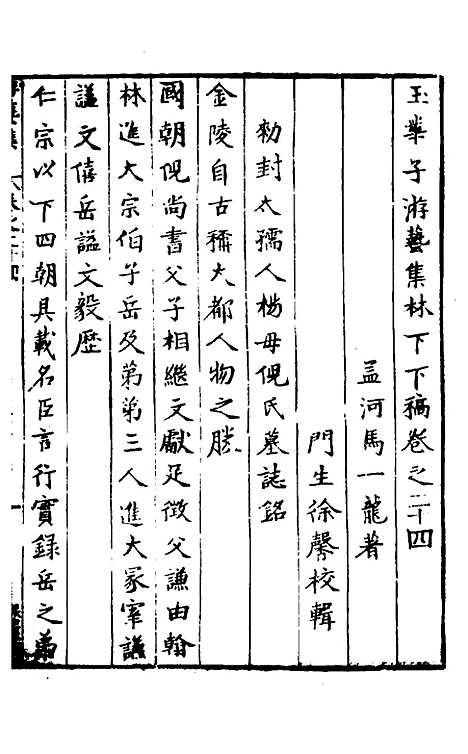 玉華子游藝集林下下稿卷之二十四
孟河馬一龍著
門生徐馨校輯
勑封太孺人楊母倪氏墓誌銘
金陵自古稱大都人物之勝
國朝倪尚書父子相繼文獻足徵父謙由翰
林進大宗伯子岳及第第三人進大冢宰謙
謚文僖岳謚文毅歷
仁宗以下四朝具載名臣言行實錄岳之弟